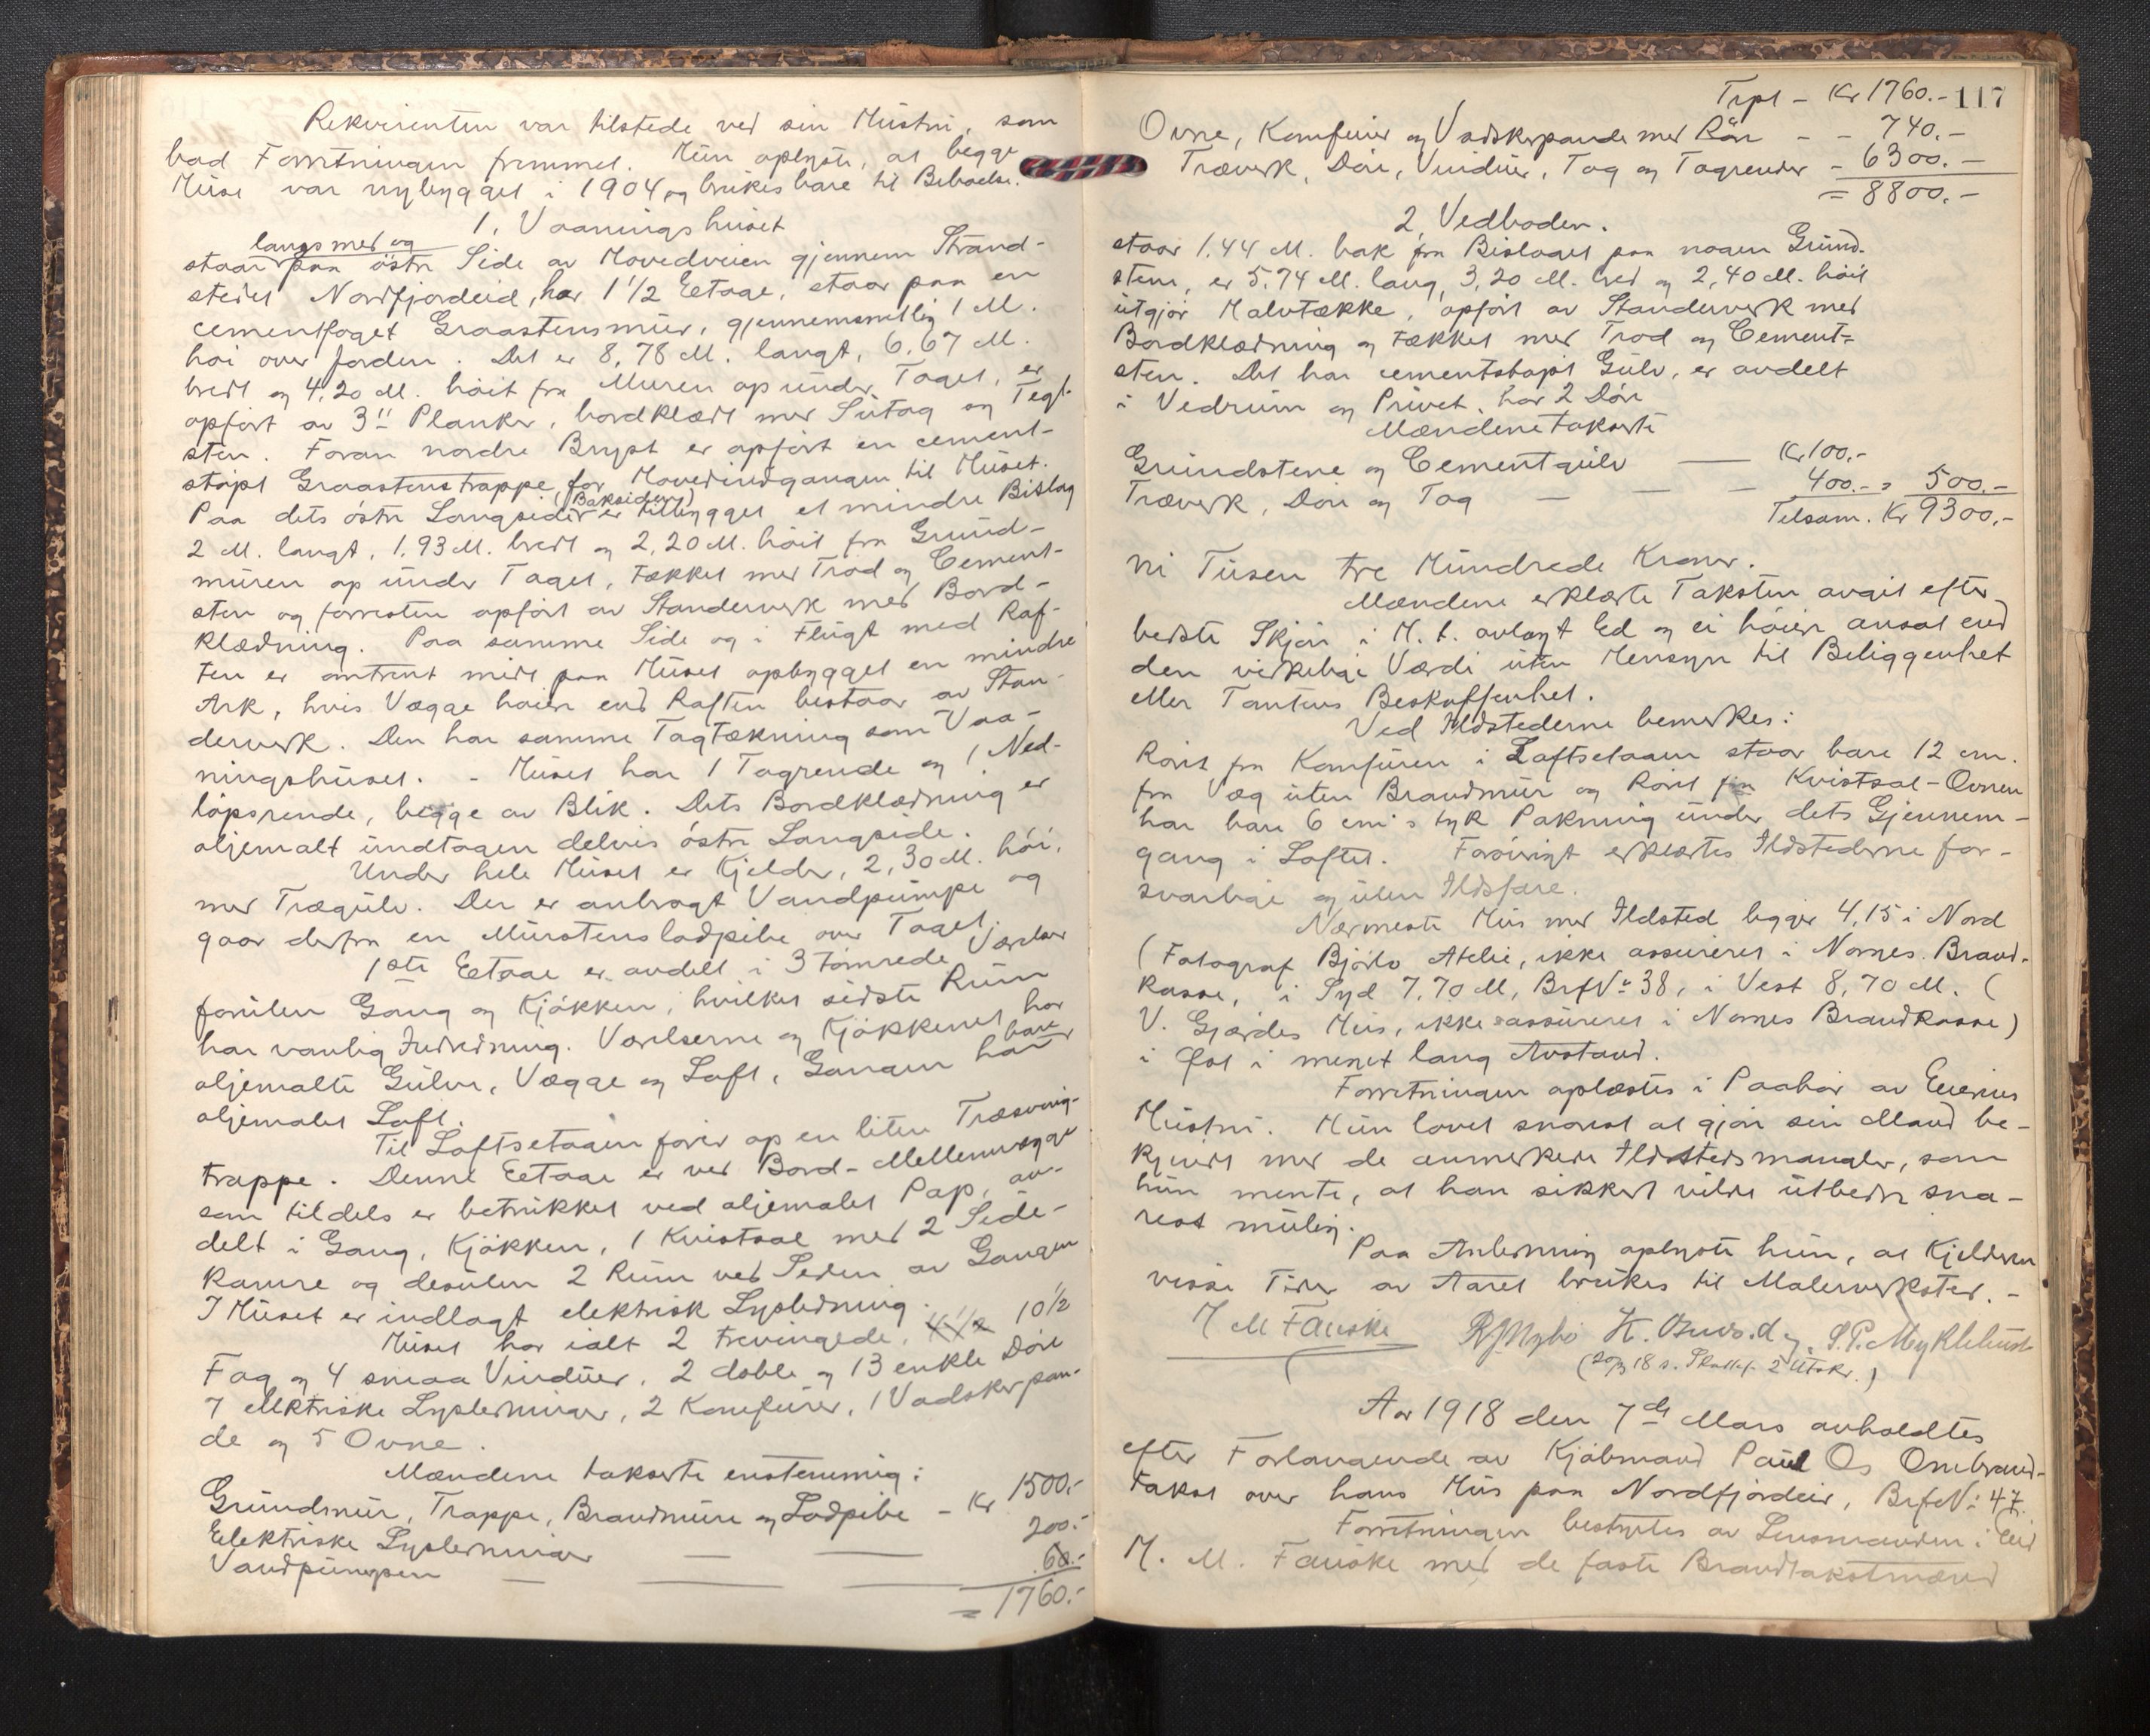 Rekvirenten var tilstede ved sin Hustru, som
bad Forretningen fremmet. Hun oplyste, at begge
Huse var nybygget i 1904 og brukes bare til Beboelse.
1. Vaaningshuset
langs med og
staar paa östre Side av Hovedveien gjennem Strand-
stedet Nordfjordeid, har 1 1/2 Eetage, staar paa en
cementfuget Graastensmur, gjennemsnitlig 1 M.
höi over Jorden. Det er 8,78 M. langt, 6,67 M.
bredt og 4,20 M. höit fra Muren op under Taget, er
opfört av 3" Planker, bordklædt med Sutag og Tegl-
sten. Foran nordre Bryst er opfört en cement-
stöpt Graastenstrappe for Hovedindgangen til Huset.
(Baksiden)
Paa dets östre Langside er tilbygget et mindre Bislag
2 M. langt, 1,93 M. bredt og 2,20 M. höit fra Grund-
muren op under Taget, tækket med Trod og Cement-
sten og forresten opfört av Standerverk med Bord-
klædning. Paa samme Side og i Flugt med Raf-
ten er omtrent midt paa Huset opbygget en mindre
Ark, hvis Vægge höiere end Raften bestaar av Stan-
derverk. Den har samme Tagtækning som Vaa-
ningshuset. - Huset har 1 Tagrende og 1 Ned-
löpsrende, begge av Blik. Dets Bordklædning er
oljemalt undtagen delvis östre Langside.
Under hele Huset er Kjelder, 2,30 M. höi,
med Trægulv. Der er anbragt Vandpumpe og
gaar derfra en Murstensladpibe over Taget.
1ste Eetage er avdelt i 3 tömrede Værelser
foruten Gang og Kjökken, hvilket sidste Rum
har vanlig Indredning. Værelserne og Kjökkenet har
oljemalte Gulve, Vægge og Loft, Gangen har bare
oljemalet Loft.
Til Loftsetagen förer op en liten Træsving-
trappe. Denne Eetage er ved Bord-Mellemvægge
som tildels er betrukket ved oljemalet Pap, av-
delt i Gang, Kjökken, 1 Kvistsal med 2 Side-
kamre og desuten 2 Rum ved Siden av Gangen
I Huset er indlagt elektrisk Lysledning.
Huset har ialt 2 trevingede, 4 1/2 10 1/2
Fag og 4 smaa Vinduer, 2 doble og 13 enkle Döre
7 elektriske Lysledninger, 2 Komfurer, 1 Vadskepan-
de og 5 Ovne.
Mændene takserte enstemmig:
Grundmur, Trappe, Brandmure og Ladpibe - Kr 1500.-
Elektriske Lysledninger 200.-
Vandpumpen 60.-
= 1760.-
Trpt - Kr 1760.- 117
Ovne, Komfurer og Vadskepande med Rör - - 740.-
Træverk, Döre, Vinduer, Tag og Tagrender - 6300.-
= 8800.-
2. Vedboden.
staar 1,44 M. bak fra Bislaget paa nogen Grund-
stene, er 5,74 M. lang, 3,20 M. bred og 2,40 M. höit
utgjör Halvtække, opfört av Standerverk med
Bordklædning og tækket med Trod og Cement-
sten. Det har cementstöpt Gulv, er avdelt
i Vedrum og Privet, har 2 Döre
Mændene takserte
Grundstene og Cementgulv — Kr 100.-
Træverk, Döre og Tag — — — 400.- = 500.-
Tilsam. Kr 9300.-
Ni Tusen tre Hundrede Kroner.
Mændene erklærte Taksten avgit efter
bedste Skjön i H. t. avlagt Ed og ei höiere ansat end
den virkelige Værdi uten Hensyn til Beliggenhet
eller Tomtens Beskaffenhet.
Ved Ildstederne bemerkes:
Röret fra Komfuren i Loftsetagen staar bare 12 cm.
fra Væg uten Brandmur og Röret fra Kvistsal-Ovnen
har bare 6 cm's tyk Pakning under dets Gjennem-
gang i Loftet. Forövrigt erklærtes Ildstederne for-
svarlige og uten Ildsfare.
Nærmeste Hus med Ildsted ligger 4,15 i Nord
(Fotograf Björlo Atelie, ikke assureret i Norges Brand-
kasse, i Syd 7,70 M, BrfNo 38, i Vest 8,70 M. (
V. Gjærdes Hus, ikke assureret i Norges Brandkasse)
i Öst i meget lang Avstand.
Forretningen oplæstes i Paahör av Eierens
Hustru. Hun lovet snarest at gjöre sin Mand be-
kjendt med de anmerkede Ildstedsmangler, som
hun mente, at han sikkert vilde utbedre sna-
rest mulig.
Paa Anledning oplyste hun, at Kjelderen
visse Tider av Aaret brukes til Malerverksted. -
H M Fauske R J Nybö S. P. Myklebust
(20/3 18 s. 2 Utskr.)
Aar 1918 den 7de Mars avholdtes
efter Forlangende av Kjöbmand Paul Os Ombrand-
takst over hans Hus paa Nordfjordeid, BrfNo: 47.
Forretningen bestyrtes av Lensmanden i Eid
H. M. Fauske med de faste Brandtakstmænd